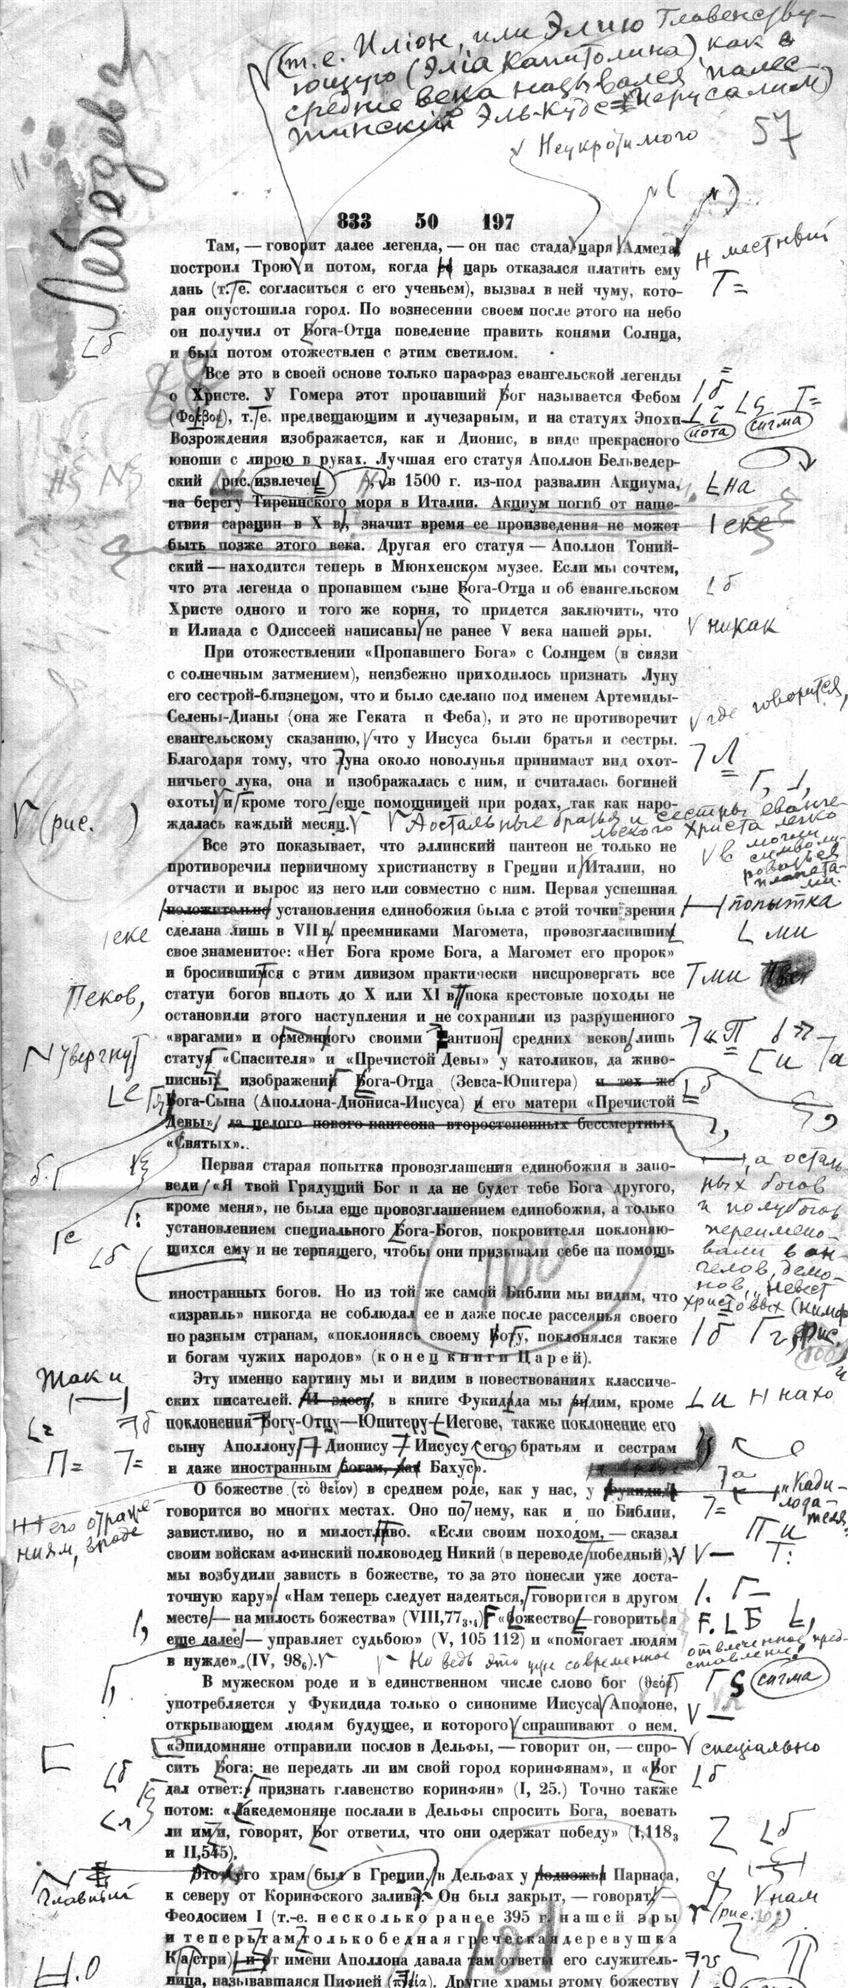 (т.е. Иліон, или Элию Главенству-
ющую (Эліа Капитолина), как в
средние века назывался палес-
тинский Эль-Кудс=Иерусалим)
Неукротимого
57
Лебедева
833 50 197
Там, — говорит далее легенда, — он пас стада царя Адмета
Н местный
построил Трою и потом, когда царь отказался платить ему
дань (т. е. согласиться с его ученьем), вызвал в ней чуму, кото-
рая опустошила город. По вознесении своем после этого на небо
он получил от Бога-Отца повеление править конями Солнца,
и был потом отожествлен с этим светилом.
Все это в своей основе только парафраз евангельской легенды
о Христе. У Гомера этот пропавший Бог называется Фебом
(Φοϊβος), т. е. предвещающим и лучезарным, и на статуях Эпохи
иота сигма
Возрождения изображается, как и Дионис, в виде прекрасного
юноши с лирою в руках. Лучшая его статуя Аполлон Бельведер-
ский рис. извлечен в 1500 г. из-под развалин Акциума,
на
на берегу Тирениского моря в Италии. Акциум погиб от наше-
ствия сарацин в X в., значит время ее произведения не может
еке
быть позже этого века. Другая его статуя — Аполлон Тоний-
ский — находится теперь в Мюнхенском музее. Если мы сочтем,
что эта легенда о пропавшем сыне Бога-Отца и об евангельском
Христе одного и того же корня, то придется заключить, что
и Илиада с Одиссеей написаны не ранее V века нашей эры.
никак
При отожествлении «Пропавшего Бога» с Солнцем (в связи
с солнечным затмением), неизбежно приходилось признать Луну
его сестрой-близнецом, что и было сделано под именем Артемиды-
Селены-Дианы (она же Геката и Феба), и это не противоречит
где говорится,
евангельскому сказанию, что у Иисуса были братья и сестры.
Благодаря тому, что луна около новолунья принимает вид охот-
ничьего лука, она и изображалась с ним, и считалась богиней
охоты и кроме того еще помощницей при родах, так как наро-
(рис. )
ждалась каждый месяц.
А остальные братья и сестры еванге-
льского Христа легко
в могли
символи-
роваться
планета-
ми.
Все это показывает, что эллинский пантеон не только не
противоречил первичному христианству в Греции и Италии, но
отчасти и вырос из него или совместно с ним. Первая успешная
положительно установления единобожия была с этой точки зрения
попытка
сделана лишь в VII в. преемниками Магомета, провозгласившим
еке
ми
свое знаменитое: «Нет Бога кроме Бога, а Магомет его пророк»
и бросившимся с этим дивизом практически ниспровергать все
ми
статуи богов вплоть до X или XI в пока крестовые походы не
веков,
остановили этого наступления и не сохранили из разрушенного
«врагами» и осмеянного своими пантион средних веков лишь
статуя «Спасителя» и «Пречистой Девы» у католиков, да живо-
писных изображений Бога-Отца (Зевса-Юпитера) и тех же
Бога-Сына (Аполлона-Диониса-Иисуса) и его матери «Пречистой
Девы» да целого нового пантеона второстепенных бессмертных
«Святых».
, а осталь-
ных богов
и полубогов
переимено-
вали в ан-
гелов, демо-
нов, „невест
христовых (нимф
рис.
Первая старая попытка провозглашения единобожия в запо-
веди «Я твой Грядущий Бог и да не будет тебе Бога другого,
кроме меня», не была еще провозглашением единобожия, а только
установлением специального Бога-Богов, покровителя поклоняю-
щихся ему и не терпящего, чтобы они призывали себе на помощь
100
иностранных богов. Но из той же самой Библии мы видим, что
«израиль» никогда не соблюдал ее и даже после рассеянья своего
по разным странам, «поклоняясь своему Богу, поклонялся также
и богам чужих народов» (конец книги Царей).
Эту именно картину мы и видим в повествованиях классиче-
Так и
ских писателей. И здесь, в книге Фукидида мы видим, кроме
нахо
поклонения Богу-Отцу—Юпитеру-Иегове, также поклонение его
сыну Аполлону Дионису Иисусу его братьям и сестрам
и даже иностранным богам, как Бахус.
О божестве (τὸ θεῖον) в среднем роде, как у нас, у Фукидид
говорится во многих местах. Оно по нему, как и по Библии,
его отраже-
ниям, вроде
завистливо, но и милостливо. «Если своим походом, — сказал
своим войскам афинский полководец Никий (в переводе победный),
мы возбудили зависть в божестве, то за это понесли уже доста-
точную кару» «Нам теперь следует надеяться, говорится в другом
месте — на милость божества» (VIII, 77₃,₄) «божество — говориться
еще далее — управляет судьбою» (V, 105 112) и «помогает людям
в нужде». (IV, 98₆).
Но ведь это уже современное
отвлеченное пред-
ставление!
В мужеском роде и в единственном числе слово бог (θεός)
сигма
употребляется у Фукидида только о синониме Иисуса Аполоне,
открывающем людям будущее, и которого спрашивают о нем.
специально
«Эпидомняне отправили послов в Дельфы, — говорит он, — спро-
сить Бога: не передать ли им свой город коринфянам», и «Бог
дал ответ: признать главенство коринфян» (I, 25.) Точно также
потом: «Лакедемоняне послали в Дельфы спросить Бога, воевать
ли им и, говорят, Бог ответил, что они одержат победу» (I,118₃
и II,545).
Этого его храм был в Греции, в Дельфах у подножья Парнаса,
Главный
к северу от Коринфского залива. Он был закрыт, — говорят —
нам
Феодосием I (т.-е. несколько ранее 395 г. нашей эры
(рис. 101)
и теперь там только бедная греческая деревушка
101
Кастри) и от имени Аполлона давала там ответы его служитель-
ница, называвшаяся Пифией Другие храмы этому божеству